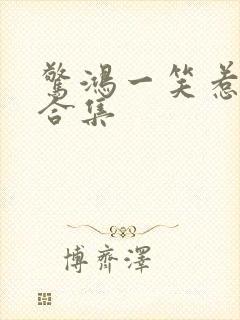 驚鴻一笑惹
合集
博齊澤